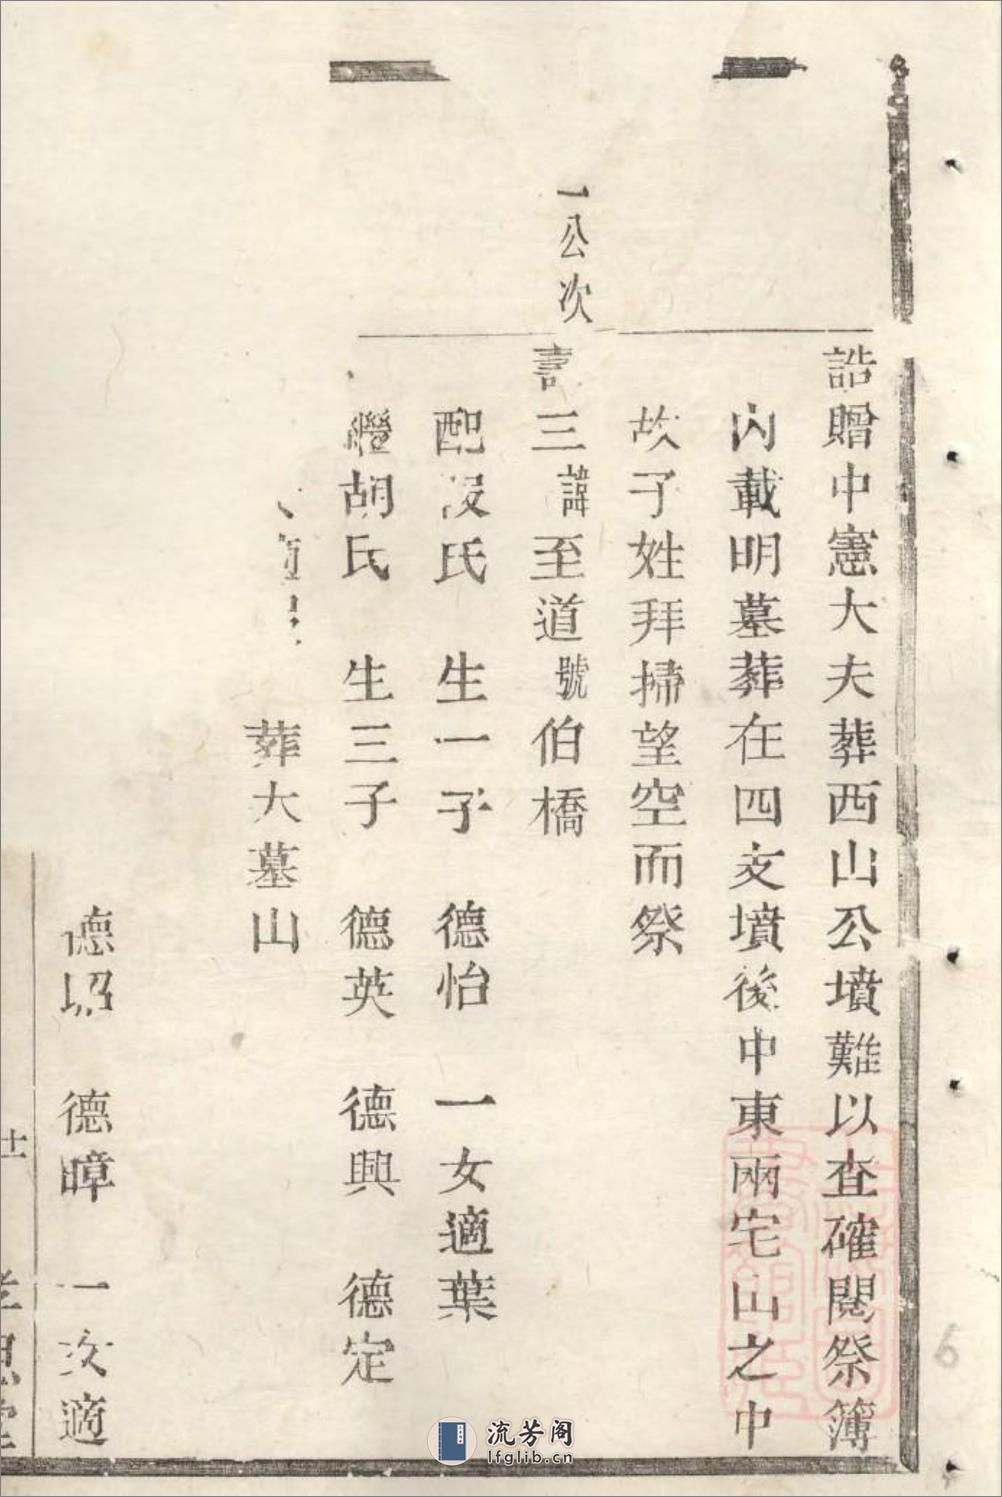 誥贈中憲大夫葬西山公墳難以查確閱祭簿
內載明墓葬在四支墳後中東兩宅山之中
故子姓拜掃望空而祭
一公次
壽三諱至道號伯橋
配段氏 生一子 德怡 一女適葉
繼胡氏 生三子 德英 德興 德定
葬大墓山
德昭 德暲 一女適
孝思堂
流芳阁
lfglib.cn
6